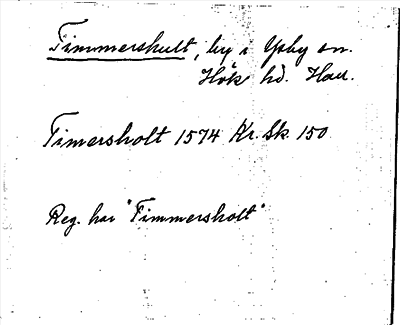 Timmershult, by i Ysby sn.
Höks hd. Hall.
Timersholt 1574 Kr. Sk. 150
Reg. har "Timmersholt"